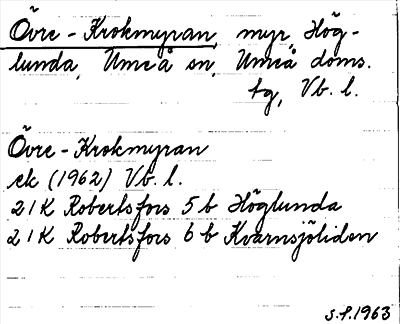 Övre-Krokmyran, myr, Hög-
lunda, Umeå sn, Umeå doms.
tg, Vb. l.
Övre-Krokmyran
ek (1962) Vb. l.
21K Robertsfors 5b Höglunda
21K Robertsfors 6b Kvarnsjöliden
S.P. 1963